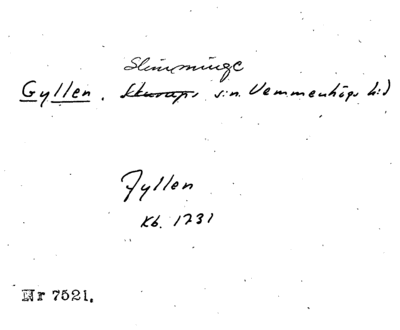 Slimminge
Gyllen. Skurups sn. Vemmenhögs hd
Jyllen
Kb. 1731
Nr 7521.